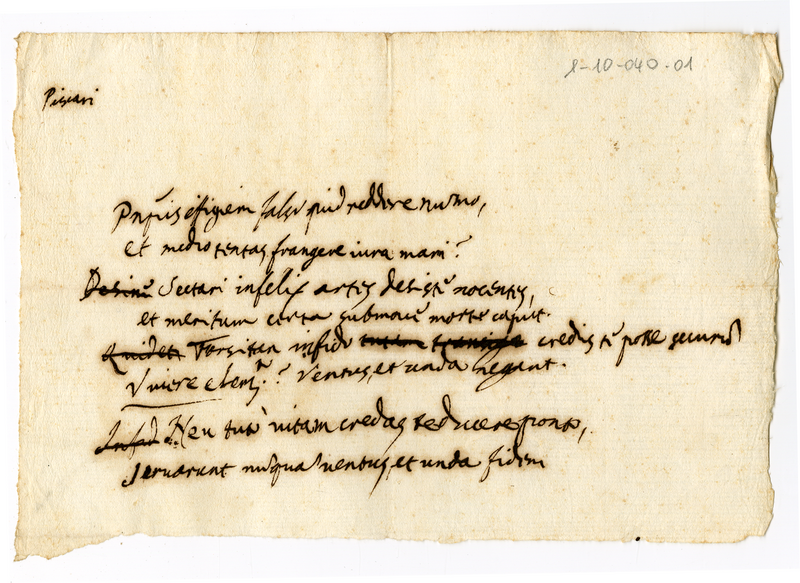 8-10-040-01
Piscari
effigiem falso quid reddere numo,
et medio tentas frangere iura mari?
Desine Sectari infelix artes desiste nocentes,
et meritum certa submove morte caput.
Forsitan infido credis te posse
Vivere ? Ventus, et unda negant.
Neu tutò vitam credas te ducere ponto,
servarunt nuquã ventus, et unda fidem